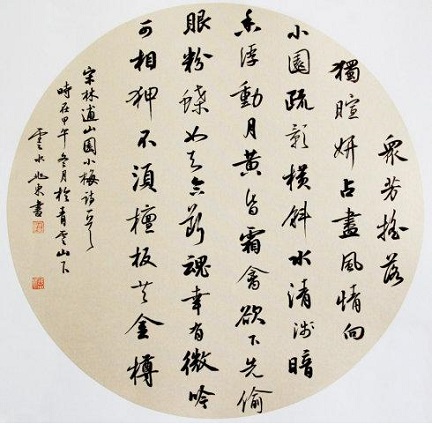 眾芳搖落
獨暄妍占盡風情向
小園疏影橫斜水清淺暗
香浮動月黃昏霜禽欲下先偷
眼粉蝶如知合斷魂幸有微吟
可相狎不須檀板共金樽
宋林逋山園小梅詩一首
時在甲午冬月於青雲山下
雲水東書